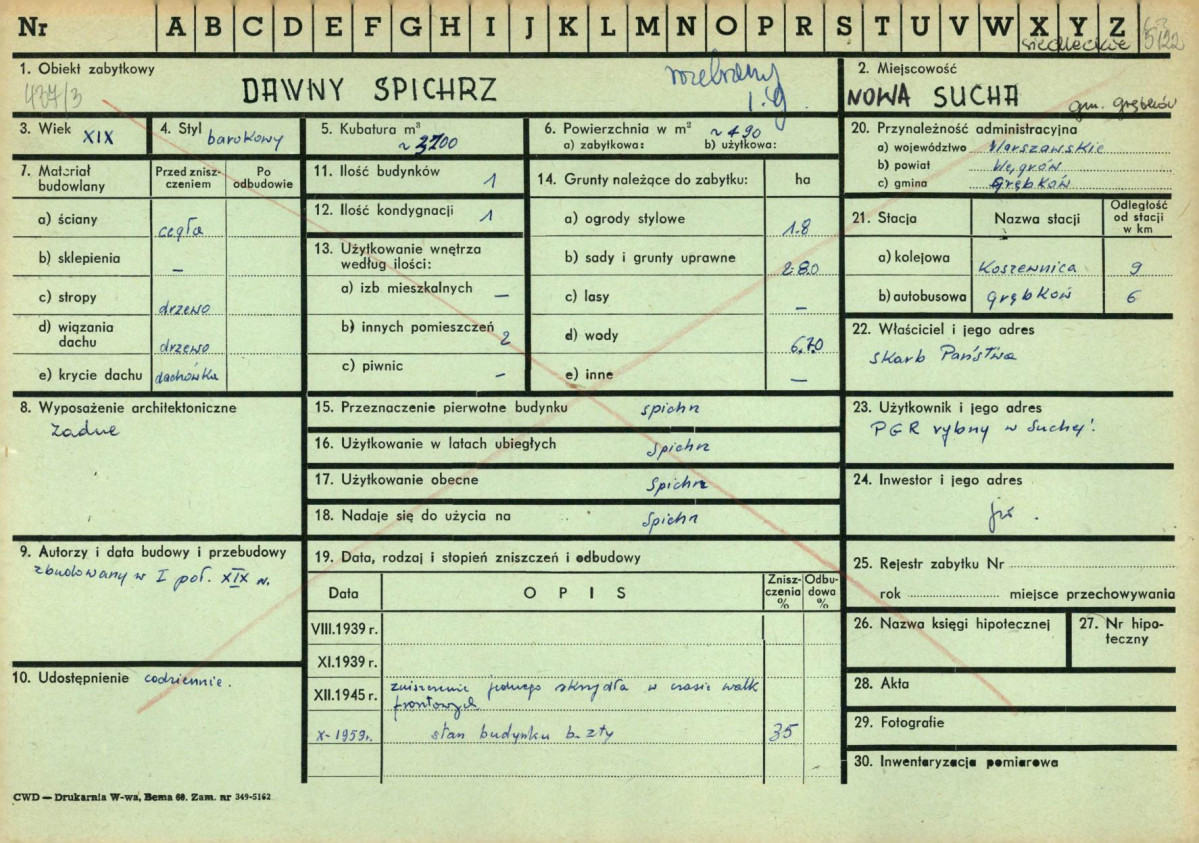 Nr A B C D E F G H I J K L M N O P R S T U V W X Y Z
siedleckie 5122
1. Obiekt zabytkowy
437/3
DAWNY SPICHRZ
rozebrany
2. Miejscowość
NOWA SUCHA
gm. Grębków
3. Wiek XIX
4. Styl barokowy
5. Kubatura m³
~ 3700
6. Powierzchnia w m² ~ 490
a) zabytkowa: b) użytkowa:
7. Materiał budowlany
Przed znisz-czeniem
Po odbudowie
a) ściany cegła
b) sklepienia –
c) stropy drzewo
d) wiązania dachu drzewo
e) krycie dachu dachówka
8. Wyposażenie architektoniczne
żadne
9. Autorzy i data budowy i przebudowy
zbudowany w I poł. XIX w.
10. Udostępnienie codziennie.
11. Ilość budynków 1
12. Ilość kondygnacji 1
13. Użytkowanie wnętrza
według ilości:
a) izb mieszkalnych –
b) innych pomieszczeń 2
c) piwnic –
14. Grunty należące do zabytku: ha
a) ogrody stylowe 1.8
b) sady i grunty uprawne 2.80
c) lasy –
d) wody 6.70
e) inne –
15. Przeznaczenie pierwotne budynku spichrz
16. Użytkowanie w latach ubiegłych spichrz
17. Użytkowanie obecne spichrz
18. Nadaje się do użycia na spichrz
19. Data, rodzaj i stopień zniszczeń i odbudowy
Data OPIS Znisz-czenia % Odbu-dowa %
VIII.1939 r.
XI.1939 r.
XII.1945 r. zniszczenie jednego skrzydła w czasie walk
frontowych
X-1959r. stan budynku b. zły 35
20. Przynależność administracyjna
a) województwo Warszawskie
b) powiat Węgrów
c) gmina Grębków
21. Stacja Nazwa stacji Odległość od stacji w km
a) kolejowa Koszewnica 9
b) autobusowa Grębków 6
22. Właściciel i jego adres
Skarb Państwa
23. Użytkownik i jego adres
PGR rybny w Suchej.
24. Inwestor i jego adres
25. Rejestr zabytku Nr
rok miejsce przechowywania
26. Nazwa księgi hipotecznej
27. Nr hipo-
teczny
28. Akta
29. Fotografie
30. Inwentaryzacja pomiarowa
CWD — Drukarnia W-wa, Bema 60. Zam. nr 349-5162